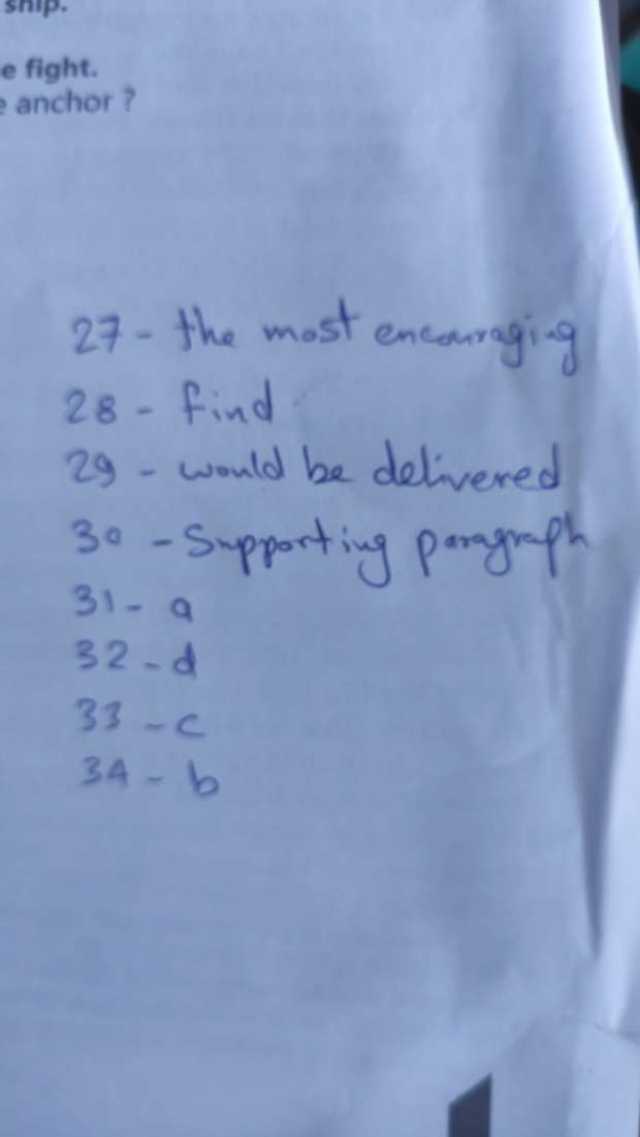 ship.
e fight.
e anchor ?
27 - the most encouraging
28 - find
29 - would be delivered
30 - Supporting paragraph
31 - a
32 - d
33 - c
34 - b